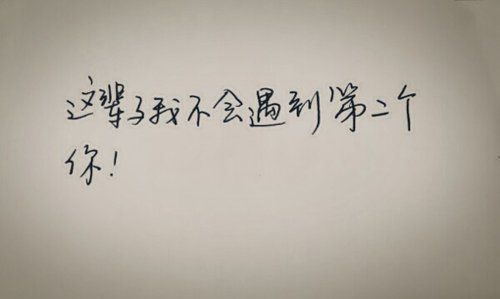 这辈子我不会遇到第二个
你!